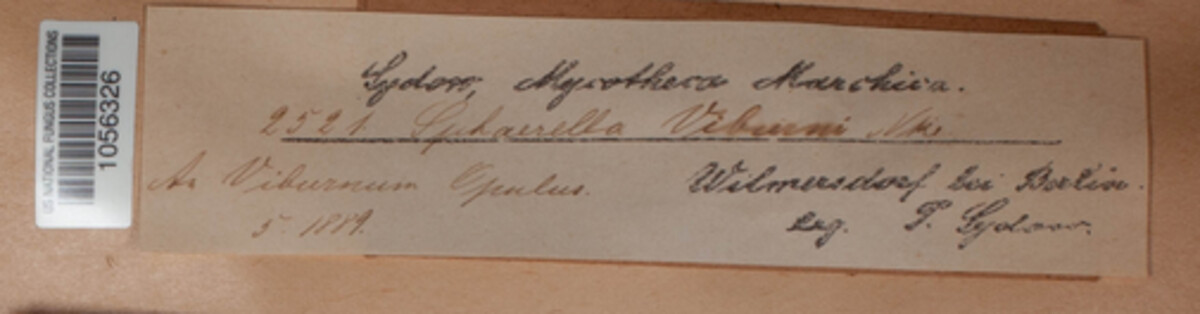 US NATIONAL FUNGUS COLLECTIONS
1056326
Sydow, Mycotheca Marchica.
2521. Sphaerella Viburni Nke.
An Viburnum Opulus.
5. 1889.
Wilmersdorf bei Berlin.
leg. P. Sydow.